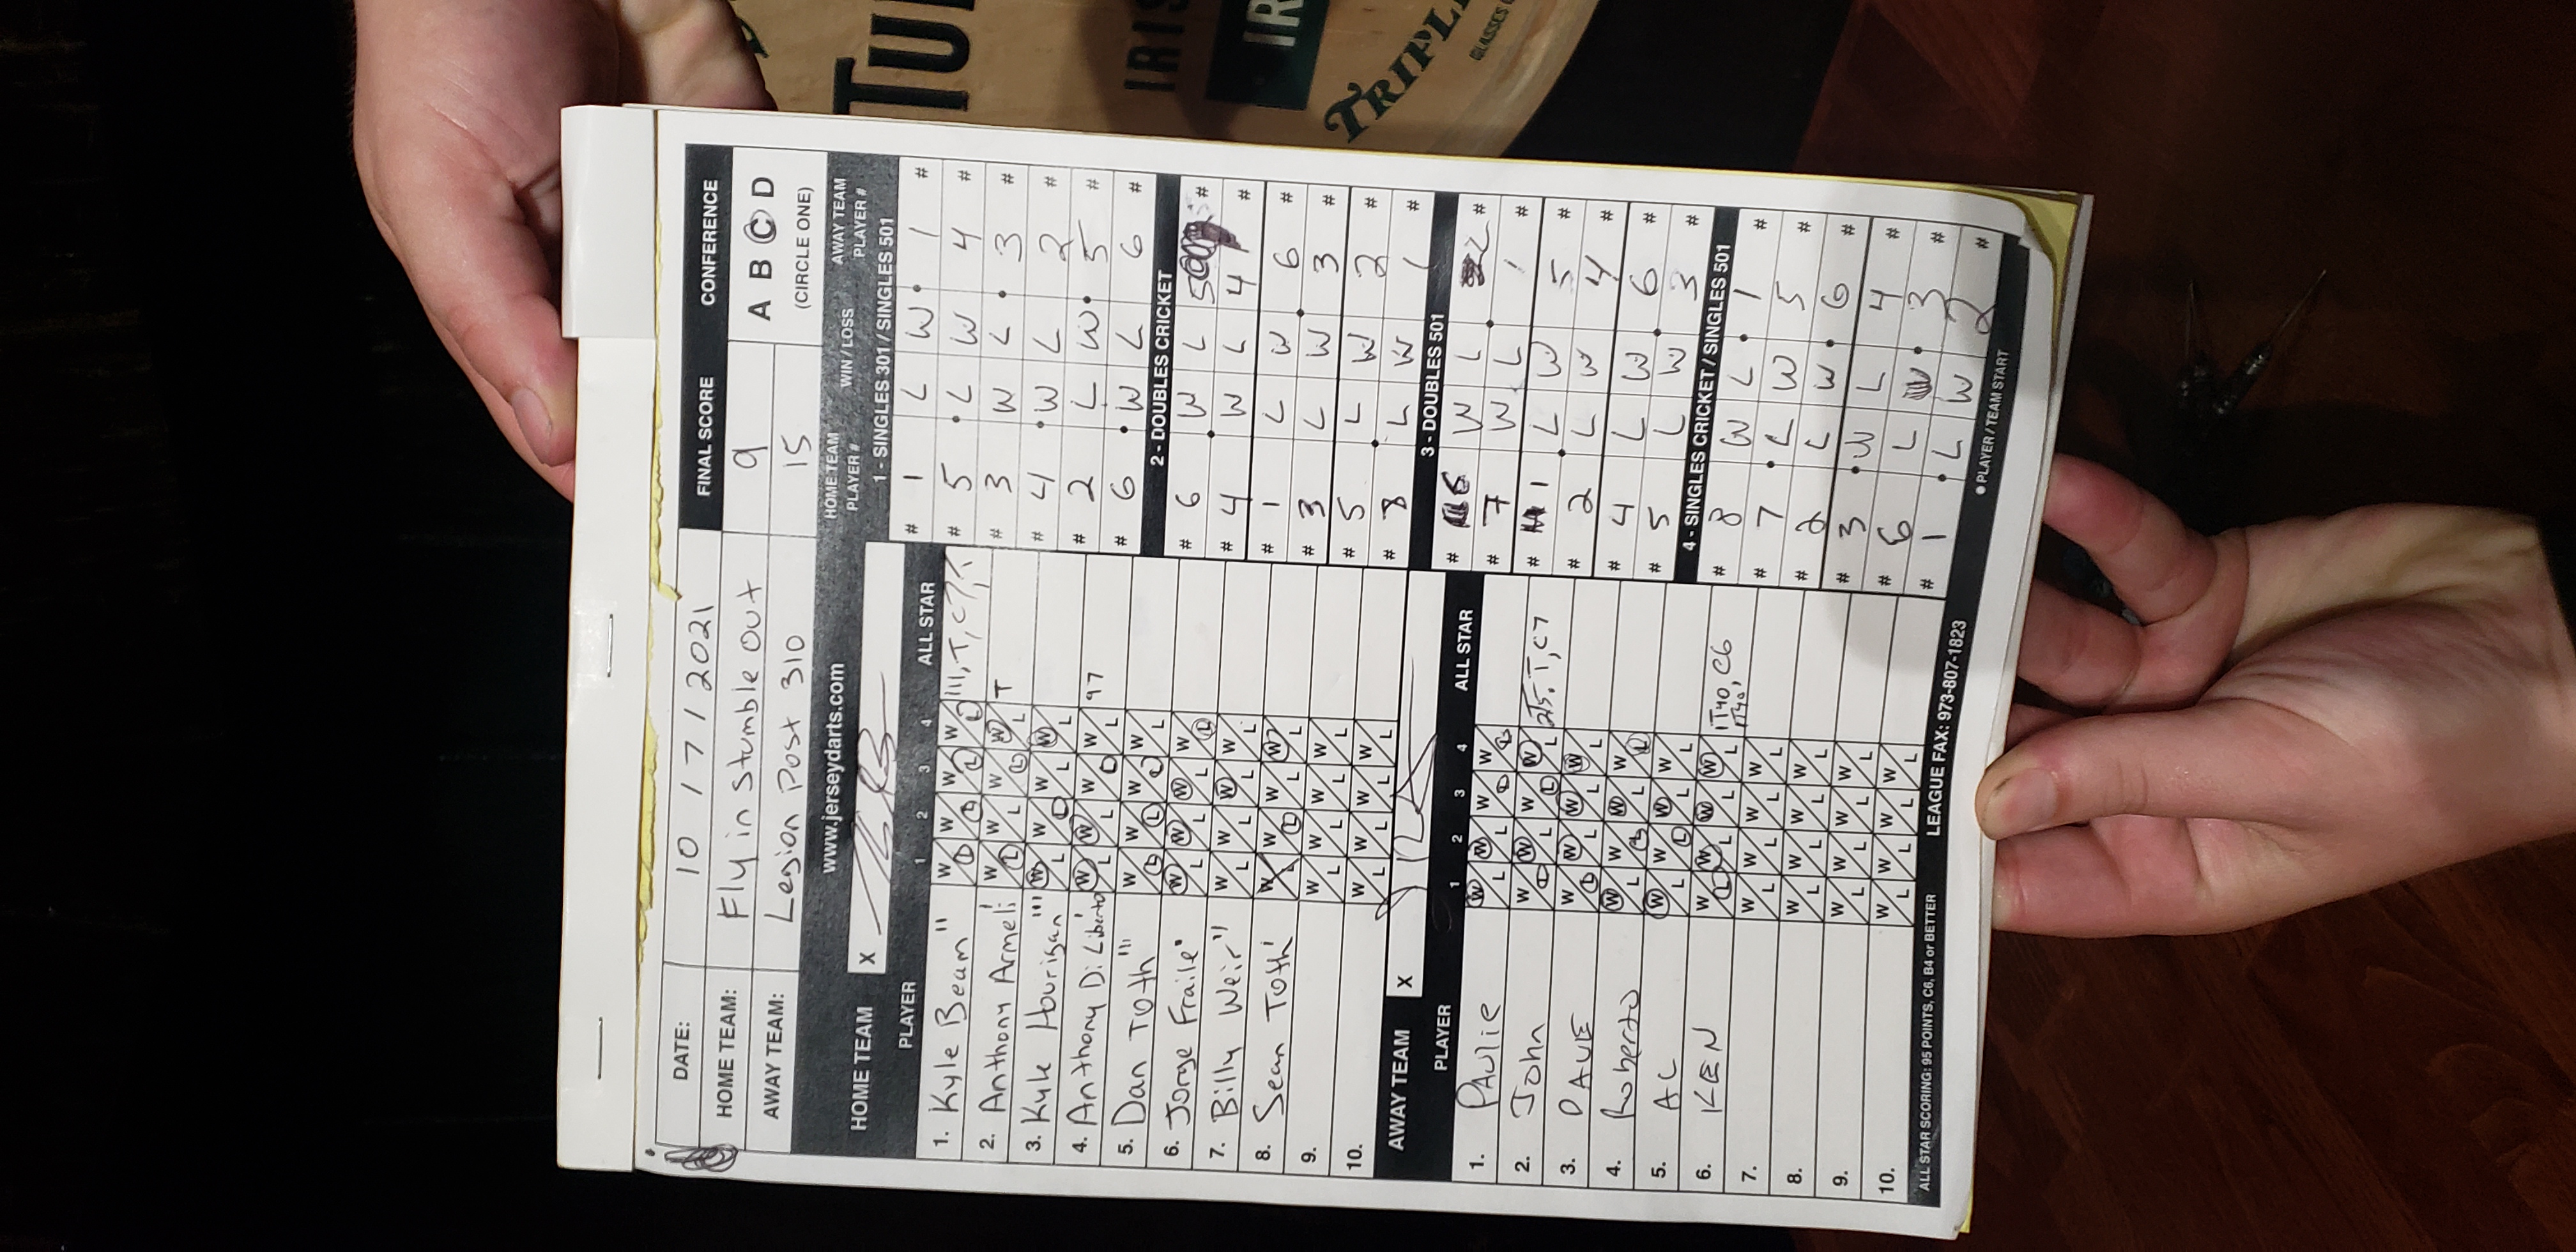 DATE: 10 / 17 / 2021 FINAL SCORE CONFERENCE
HOME TEAM: Fly in Stumble Out 9 A B C D
AWAY TEAM: Legion Post 310 15 (CIRCLE ONE)
www.jerseydarts.com
HOME TEAM X
PLAYER 1 2 3 4 ALL STAR
1. Kyle Beam" W L W L W L W L 111, T, C7, T
2. Anthony Armeli' W L W L W L W L T
3. Kyle Hourigan ''' W L W L W L W L
4. Anthony DiLiberto W L W L W L W L 97
5. Dan Toth ''' W L W L W L W L
6. Jorge Fraile' W L W L W L W L
7. Billy Weir" W L W L W L W L
8. Sean Toth' W L W L W L W L
9. W L W L W L W L
10. W L W L W L W L
AWAY TEAM X
PLAYER 1 2 3 4 ALL STAR
1. PAULIE W L W L W L W L
2. John W L W L W L W L 2T5, T, C7
3. DAVE W L W L W L W L
4. Roberto W L W L W L W L
5. AL W L W L W L W L
6. KEN W L W L W L W L 1T40, C6
1T40,
7. W L W L W L W L
8. W L W L W L W L
9. W L W L W L W L
10. W L W L W L W L
ALL STAR SCORING: 95 POINTS, C6, B4 or BETTER LEAGUE FAX: 973-807-1823
HOME TEAM PLAYER # WIN / LOSS AWAY TEAM PLAYER #
1 - SINGLES 301 / SINGLES 501
# 1 L W 1 #
# 5 L W 4 #
# 3 W L 3 #
# 4 W L 2 #
# 2 L W 5 #
# 6 W L 6 #
2 - DOUBLES CRICKET
# 6 W L 5 #
# 4 W L 4 #
# 1 L W 6 #
# 3 L W 3 #
# 5 L W 2 #
# 8 L W 1 #
3 - DOUBLES 501
# 6 W L 2 #
# 7 W L 1 #
# 1 L W 5 #
# 2 L W 4 #
# 4 L W 6 #
# 5 L W 3 #
4 - SINGLES CRICKET / SINGLES 501
# 8 W L 1 #
# 7 L W 5 #
# 2 L W 6 #
# 3 W L 4 #
# 6 L W 3 #
# 1 L W 2 #
● PLAYER / TEAM START
TRIPLE
GLASSES